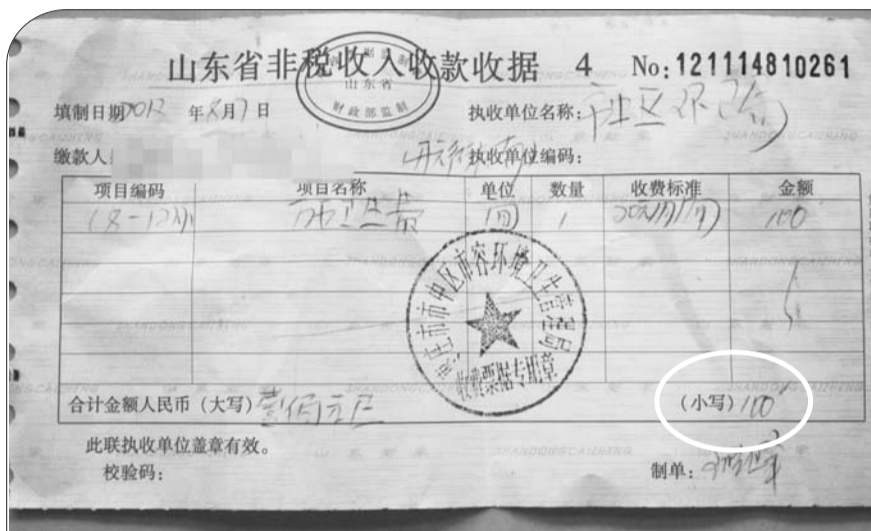 山东省非税收入收款收据 4 No:121114810261
山东省
财政部监制
填制日期2012年8月7日 执收单位名称:
缴款人: 执收单位编码:
项目编码 项目名称 单位 数量 收费标准 金额
(8-12月) 卫生费 1 20元/月/间 100
枣庄市市中区市容环境卫生管理局
收费票据专用章
合计金额人民币(大写)壹佰元正 (小写)100
此联执收单位盖章有效。
校验码: 制单: